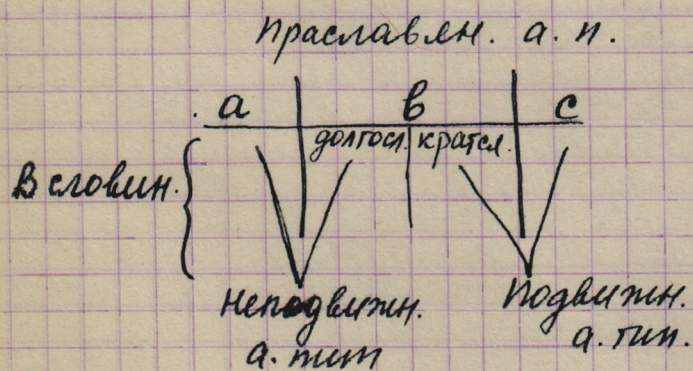 праславян. а. п.
а в с
долгосл. кратсл.
В словин.
Неподвижн. Подвижн.
а. тип а. тип.